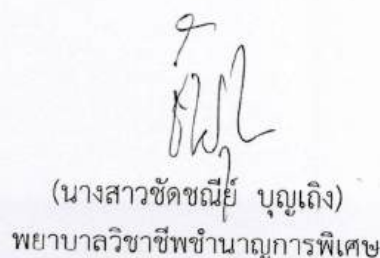 (นางสาวชัดชณีย์ บุญเถิง)
พยาบาลวิชาชีพชำนาญการพิเศษ